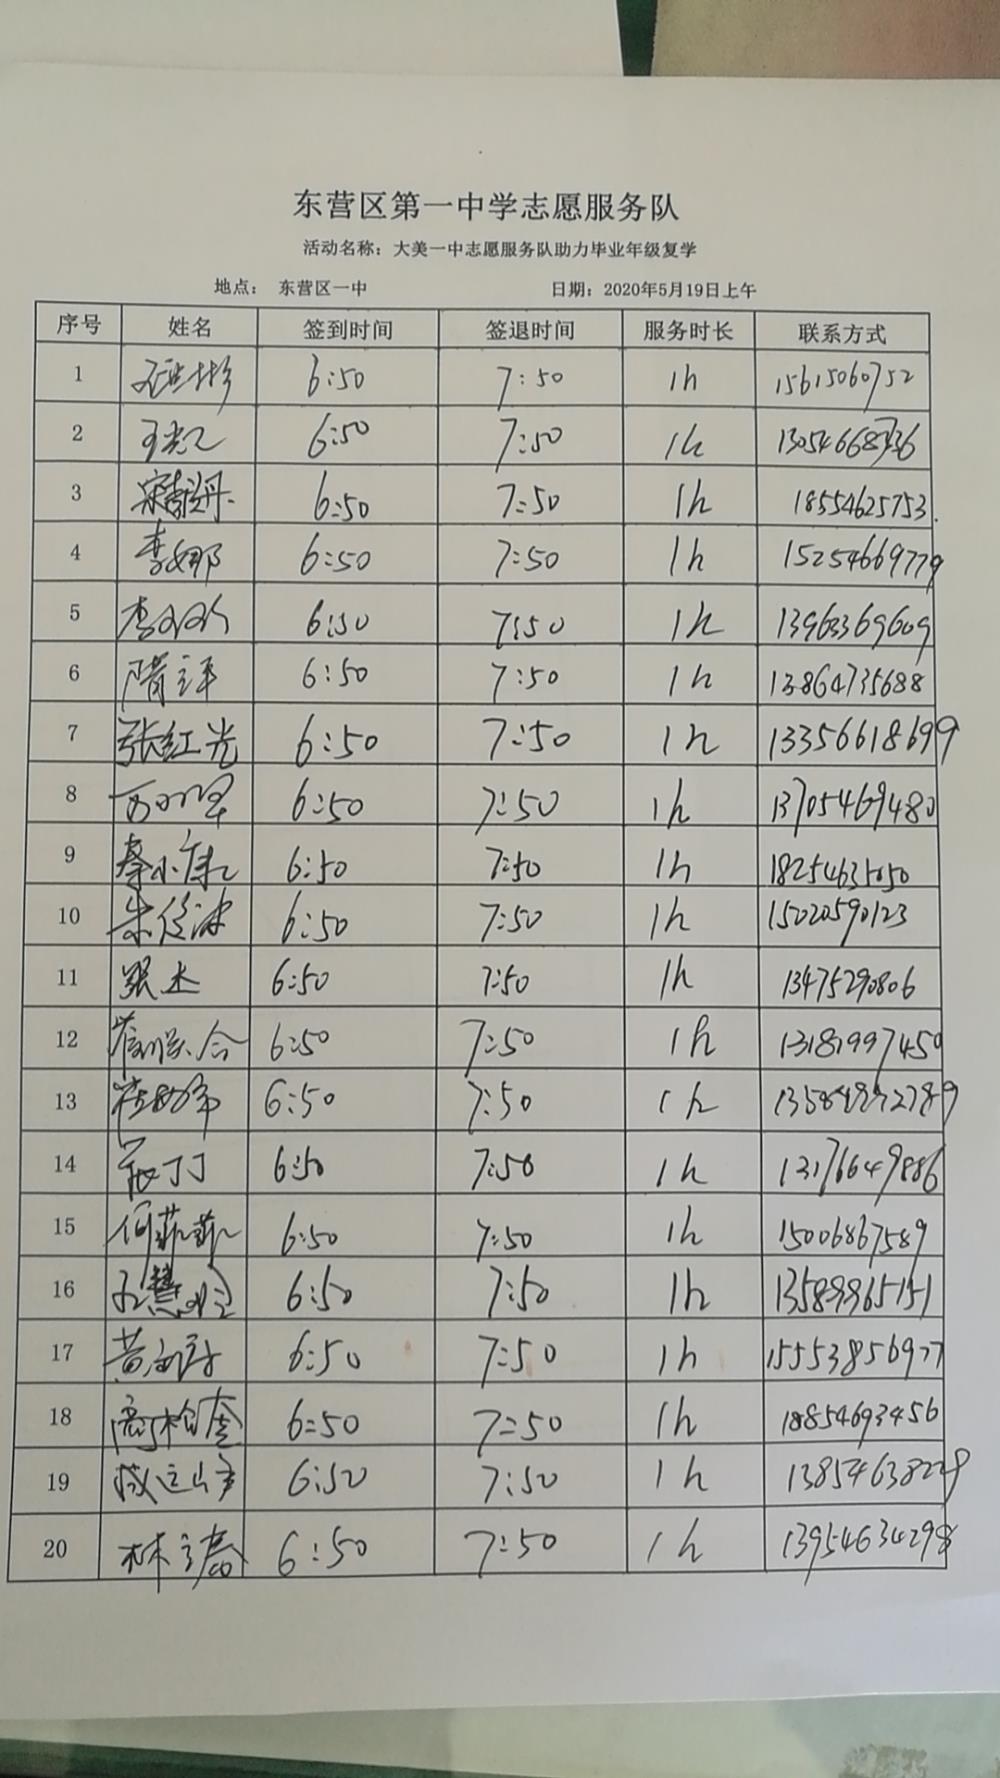 东营区第一中学志愿服务队
活动名称：大美一中志愿服务队助力毕业年级复学
地点： 东营区一中 日期：2020年5月19日上午
序号 姓名 签到时间 签退时间 服务时长 联系方式
1 6:50 7:50 1h 15615060752
2 6:50 7:50 1h
3 6:50 7:50 1h 18554625753.
4 李娜 6:50 7:50 1h 15254669779
5 6:50 7:50 1h 13963369609
6 隋立平 6:50 7:50 1h 13864735688
7 张红光 6:50 7:50 1h 13356618699
8 6:50 7:50 1h 13705469480
9 秦小康 6:50 7:50 1h 18254635050
10 6:50 7:50 1h 15020590123
11 6:50 7:50 1h 13475290806
12 6:50 7:50 1h 13181997450
13 6:50 7:50 1h
14 6:50 7:50 1h 13176649886
15 何菲菲 6:50 7:50 1h 15006867589
16 6:50 7:50 1h 13589965151
17 6:50 7:50 1h 15553856977
18 6:50 7:50 1h 18854693456
19 6:50 7:50 1h
20 林立春 6:50 7:50 1h 13954634298